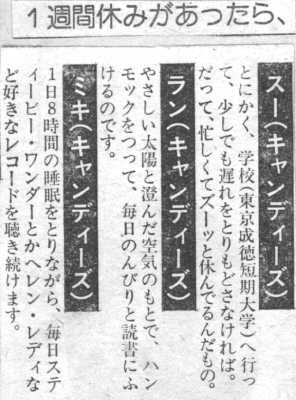 1週間休みがあったら、
スー(キャンディーズ)
とにかく、学校(東京成徳短期大学)へ行っ
て、少しでも遅れをとりもどさなければ。
だって、忙しくてズーッと休んでるんだもの。
ラン(キャンディーズ)
やさしい太陽と澄んだ空気のもとで、ハン
モックをつって、毎日のんびりと読書にふ
けるのです。
ミキ(キャンディーズ)
1日8時間の睡眠をとりながら、毎日ステ
ィービー・ワンダーとかヘレン・レディな
ど好きなレコードを聴き続けます。